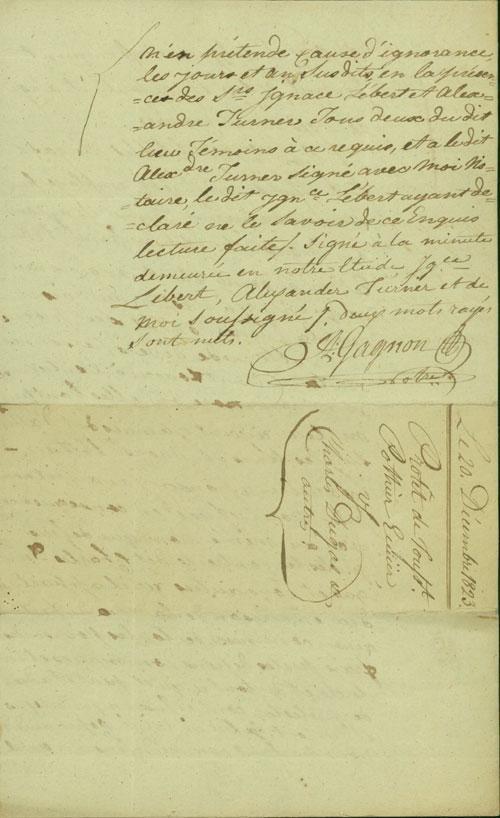 n'en prétende Cause d'ignorance
les jours et an Susdits, en la présen-
=ces des Srs Ignace Lébert et Alex-
=andre Turner Tous deux du dit
lieu Témoins à ce requis, et a le dit
Alexdre Turner Signé avec moi No-
=taire, le dit Ignce Lébert ayant dé-
=claré ne le Savoir de ce Enquis
lecture faite /. Signé à la minute
demeurée en notre Etude Igce
Lébert, Alexander Turner et de
moi Soussigné /. deux mots rayés
Sont nuls.
A: Gagnon
Notre.
Le 20. Décembre 1823.
Protêt de
Pothier Ecuier
v
Charles Dubois &
autres.